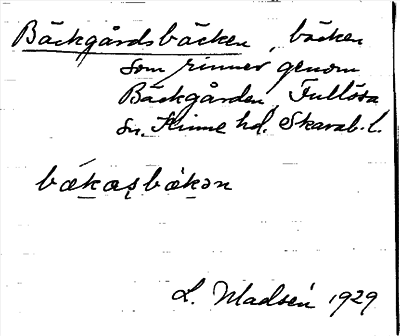 Bäckgårdsbäcken, bäcken
som rinner genom
Bäckgården, Fullösa
sn. Kinne hd. Skarab. l.
bækæʂbækən
L. Madsén 1929